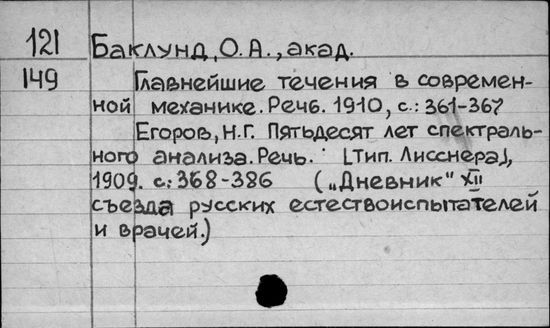 121 Баклунд, О.А., акад.
149 Главнейшие течения в современ-
ной механике. Речь. 1910, с.: 361-367
Егоров, Н.Г. Пятьдесят лет спектраль-
ного анализа. Речь. [Тип. Лисснера],
1909. с.: 368-386 („Дневник" XII
съезда русских естествоиспытателей
и врачей.)